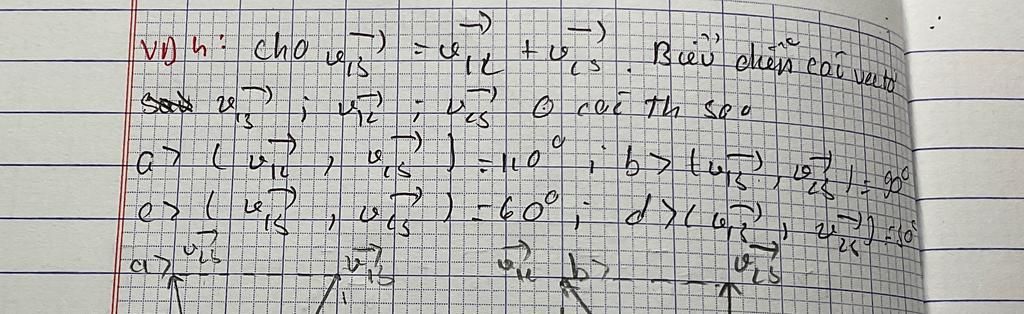 VD4: cho v₁₃→ = v₁₂→ + v₂₃→. Biểu diễn các vectơ
v₁₃→ ; v₁₂→ ; v₂₃→ ở các th sau
a> ( v₁₂→ , v₂₃→ ) = 110° ; b> ( v₁₃→ , v₂₃→ ) = 90°
c> ( v₁₃→ , v₂₃→ ) = 60° ; d> ( v₁₃→ , v₂₃→ ) = 30°
a> v₂₃→ v₁₃→ v₁₂→ b> v₂₃→